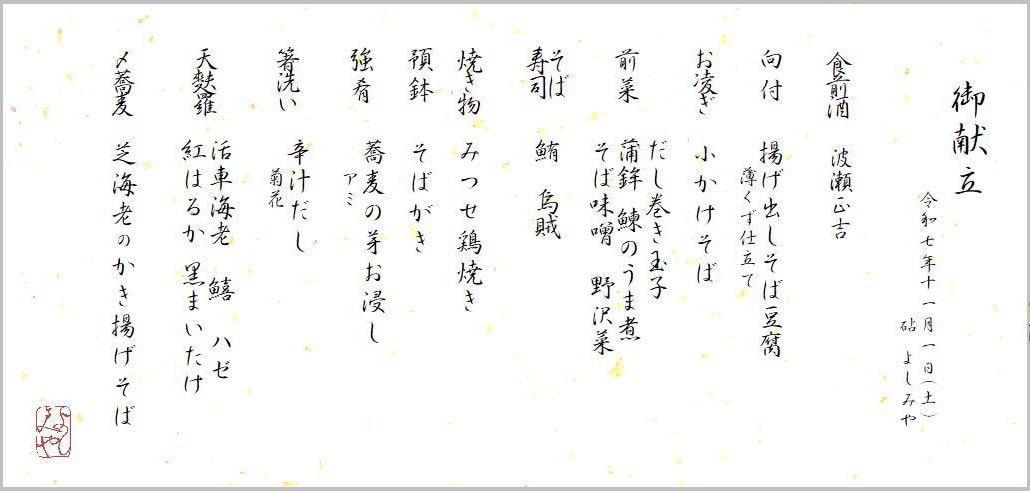 御献立
令和七年十一月一日(土)
砧 よしみや
食前酒 波瀬正吉
向付 揚げ出しそば豆腐
薄くず仕立て
お凌ぎ 小かけそば
前菜 だし巻き玉子
蒲鉾 鰊のうま煮
そば味噌 野沢菜
そば寿司 鮪 烏賊
焼き物 みつせ鶏焼き
預鉢 そばがき
強肴 蕎麦の芽お浸し
アミ
箸洗い 辛汁だし
菊花
天麩羅 活車海老 鱚 ハゼ
紅はるか 黒まいたけ
〆蕎麦 芝海老のかき揚げそば